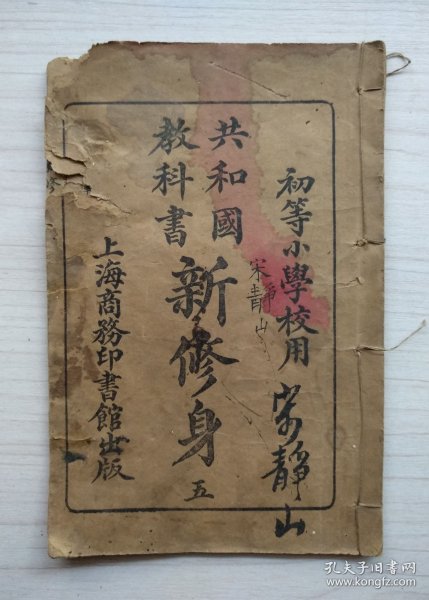 初等小學校用
宋靜山
宋靜山
共和國
教科書
新修身
五
上海商務印書館出版
孔夫子旧书网
www.kongfz.com